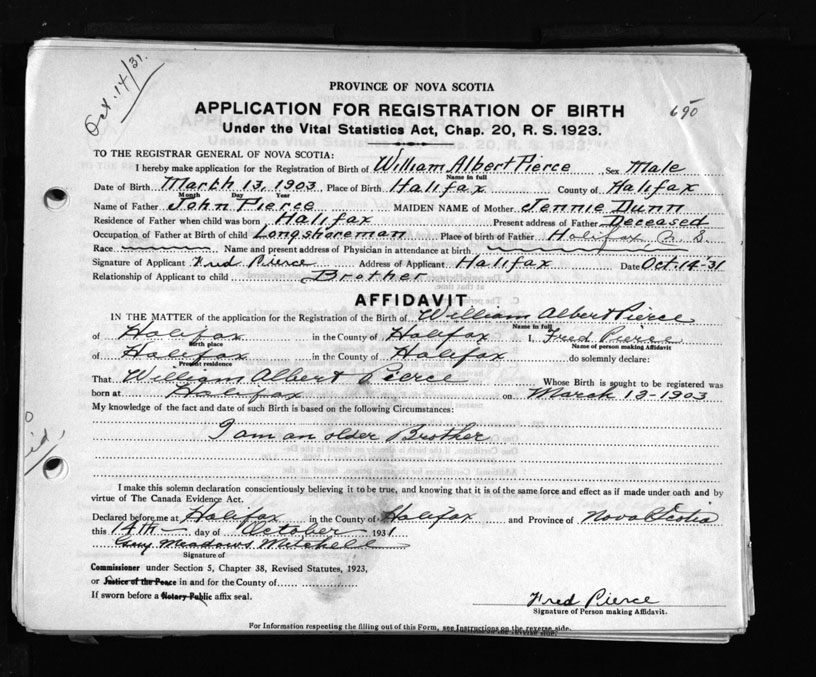 Oct. 14/31.
PROVINCE OF NOVA SCOTIA
690
APPLICATION FOR REGISTRATION OF BIRTH
Under the Vital Statistics Act, Chap. 20, R. S. 1923.
TO THE REGISTRAR GENERAL OF NOVA SCOTIA:
I hereby make application for the Registration of Birth of William Albert Pierce Sex Male
Name in full
Date of Birth March 13, 1903 Place of Birth Halifax County of Halifax
Month Day Year
Name of Father John Pierce MAIDEN NAME of Mother Jennie Dunn
Residence of Father when child was born Halifax Present address of Father Deceased
Occupation of Father at Birth of child Longshoreman Place of birth of Father Halifax
Race Name and present address of Physician in attendance at birth
Signature of Applicant Fred Pierce Address of Applicant Halifax Date Oct. 14-'31
Relationship of Applicant to child Brother
AFFIDAVIT
IN THE MATTER of the application for the Registration of the Birth of William Albert Pierce
Name in full
of Halifax in the County of Halifax I, Fred Pierce
Birth place Name of person making Affidavit
of Halifax in the County of Halifax do solemnly declare:
Present residence
That William Albert Pierce Whose Birth is sought to be registered was
born at Halifax on March 13-1903
My knowledge of the fact and date of such Birth is based on the following Circumstances:
I am an older Brother
I make this solemn declaration conscientiously believing it to be true, and knowing that it is of the same force and effect as if made under oath and by
virtue of The Canada Evidence Act.
Declared before me at Halifax in the County of Halifax and Province of Nova Scotia
this 14th day of October 1931
Meadows Mitchell
Signature of
Commissioner under Section 5, Chapter 38, Revised Statutes, 1923,
or Justice of the Peace in and for the County of
If sworn before a Notary Public affix seal.
Fred Pierce
Signature of Person making Affidavit.
For Information respecting the filling out of this Form, see Instructions on the reverse side.